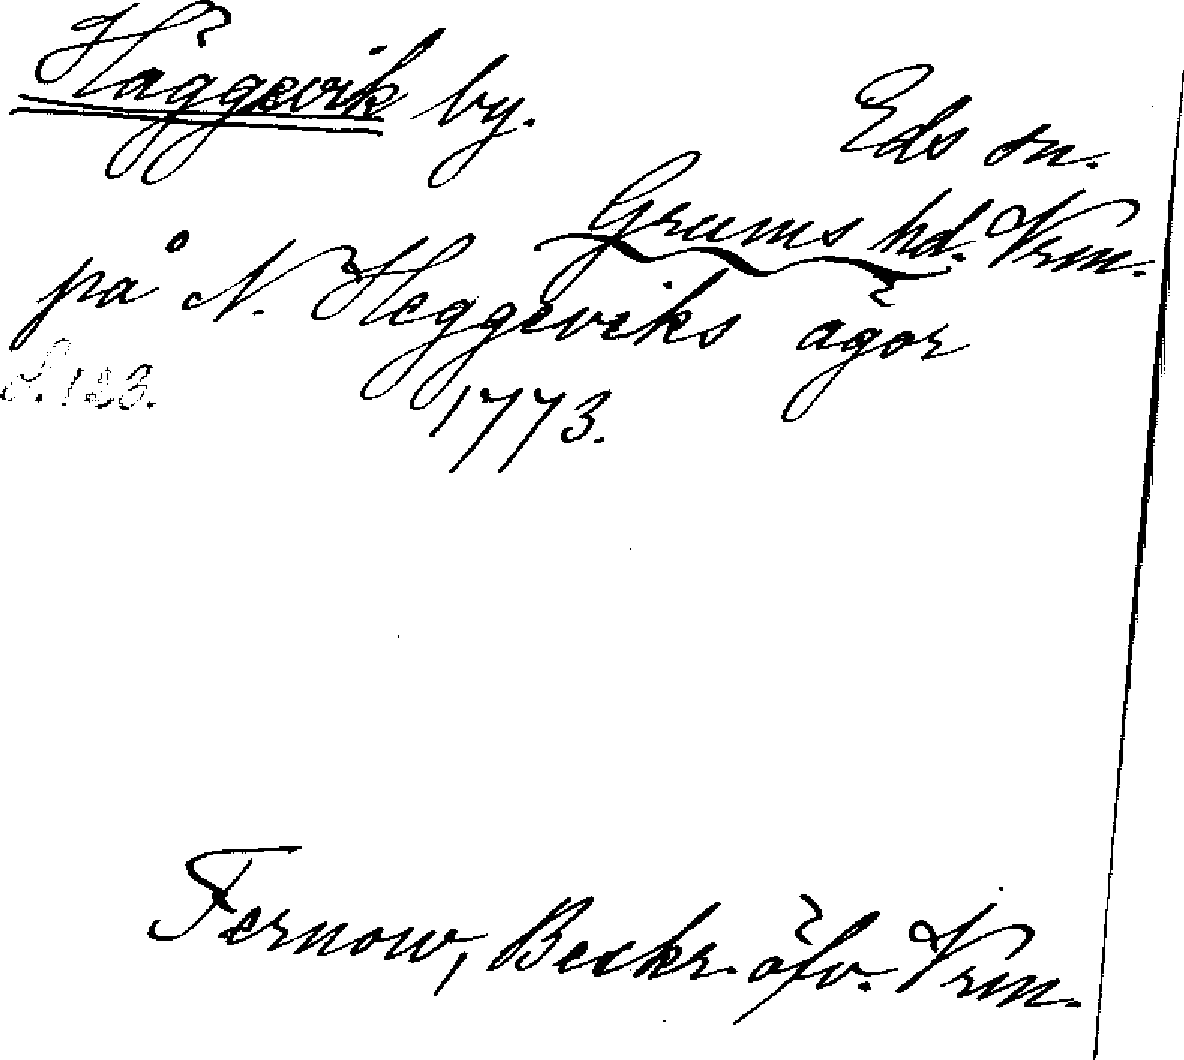 Häggevik by.
Eds sn.
Grums hd. Vrm.
på N. Heggeviks ägor
S. 123.
1773.
Fernow, Beskr. öfv. Vrm.